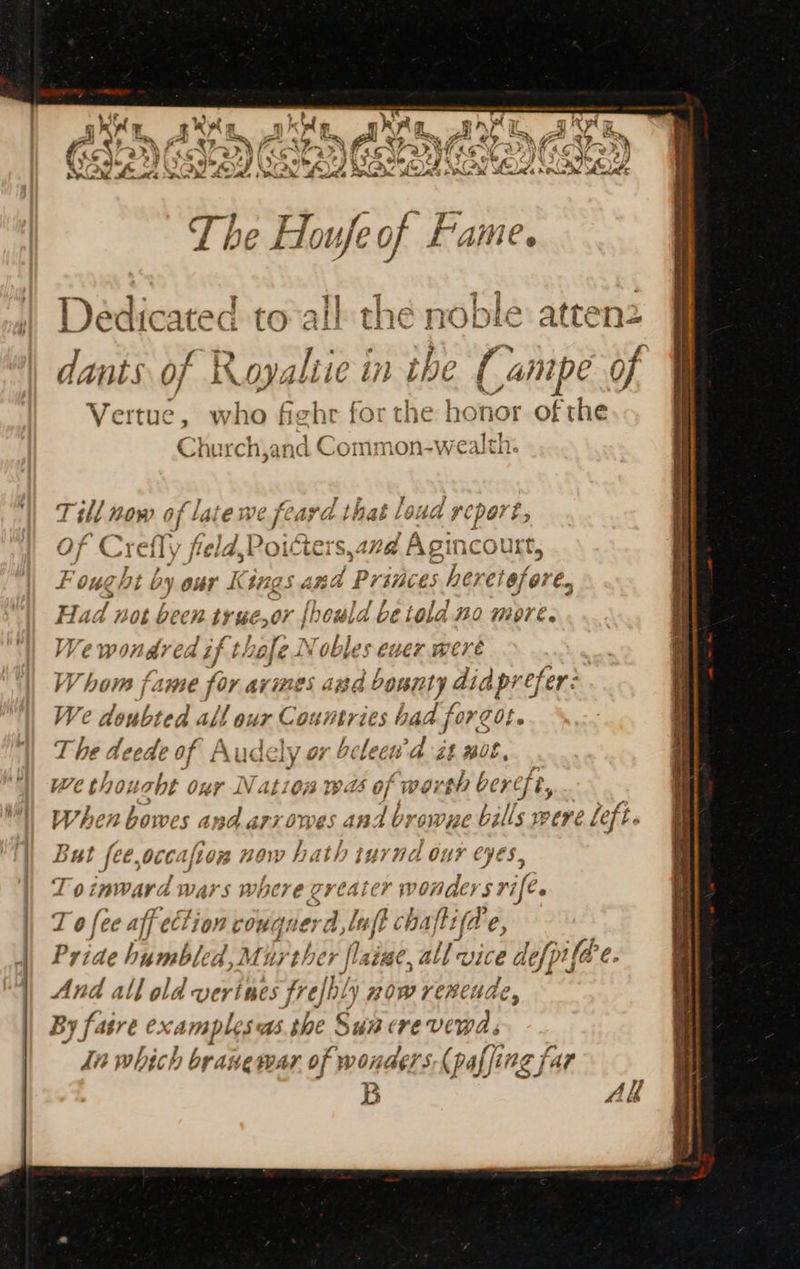 The Houſe of Fame.
Dedicated to all the noble atten-
dants of Royaltie in the Campe of
Vertue, who fight for the honor of the
Church,and Common-wealth.
Till now of late we feard that loud report,
Of Creſſy field,Poicters,and Agincourt,
Fought by our Kings and Princes heretofore,
Had not been true,or ſhould be told no more.
We wondred if thoſe Nobles euer were
Whom fame for armes and bounty did prefer:
We doubted all our Countries had forgot.
The deede of Audely or beleeu'd it not,
We thought our Nation was of worth bereft,
When bowes and arrowes and browne bills were left.
But ſee,occaſion now hath turnd our eyes,
To inward wars where greater wonders riſe.
To ſee affection conquerd,luſt chaſtiſd'e,
Pride humbled,Murther ſlaine, all vice deſpiſd'e.
And all old vertues freſhly now renewde,
By faire examples as the Sun
In which braue war of wonders (paſſing far
B All